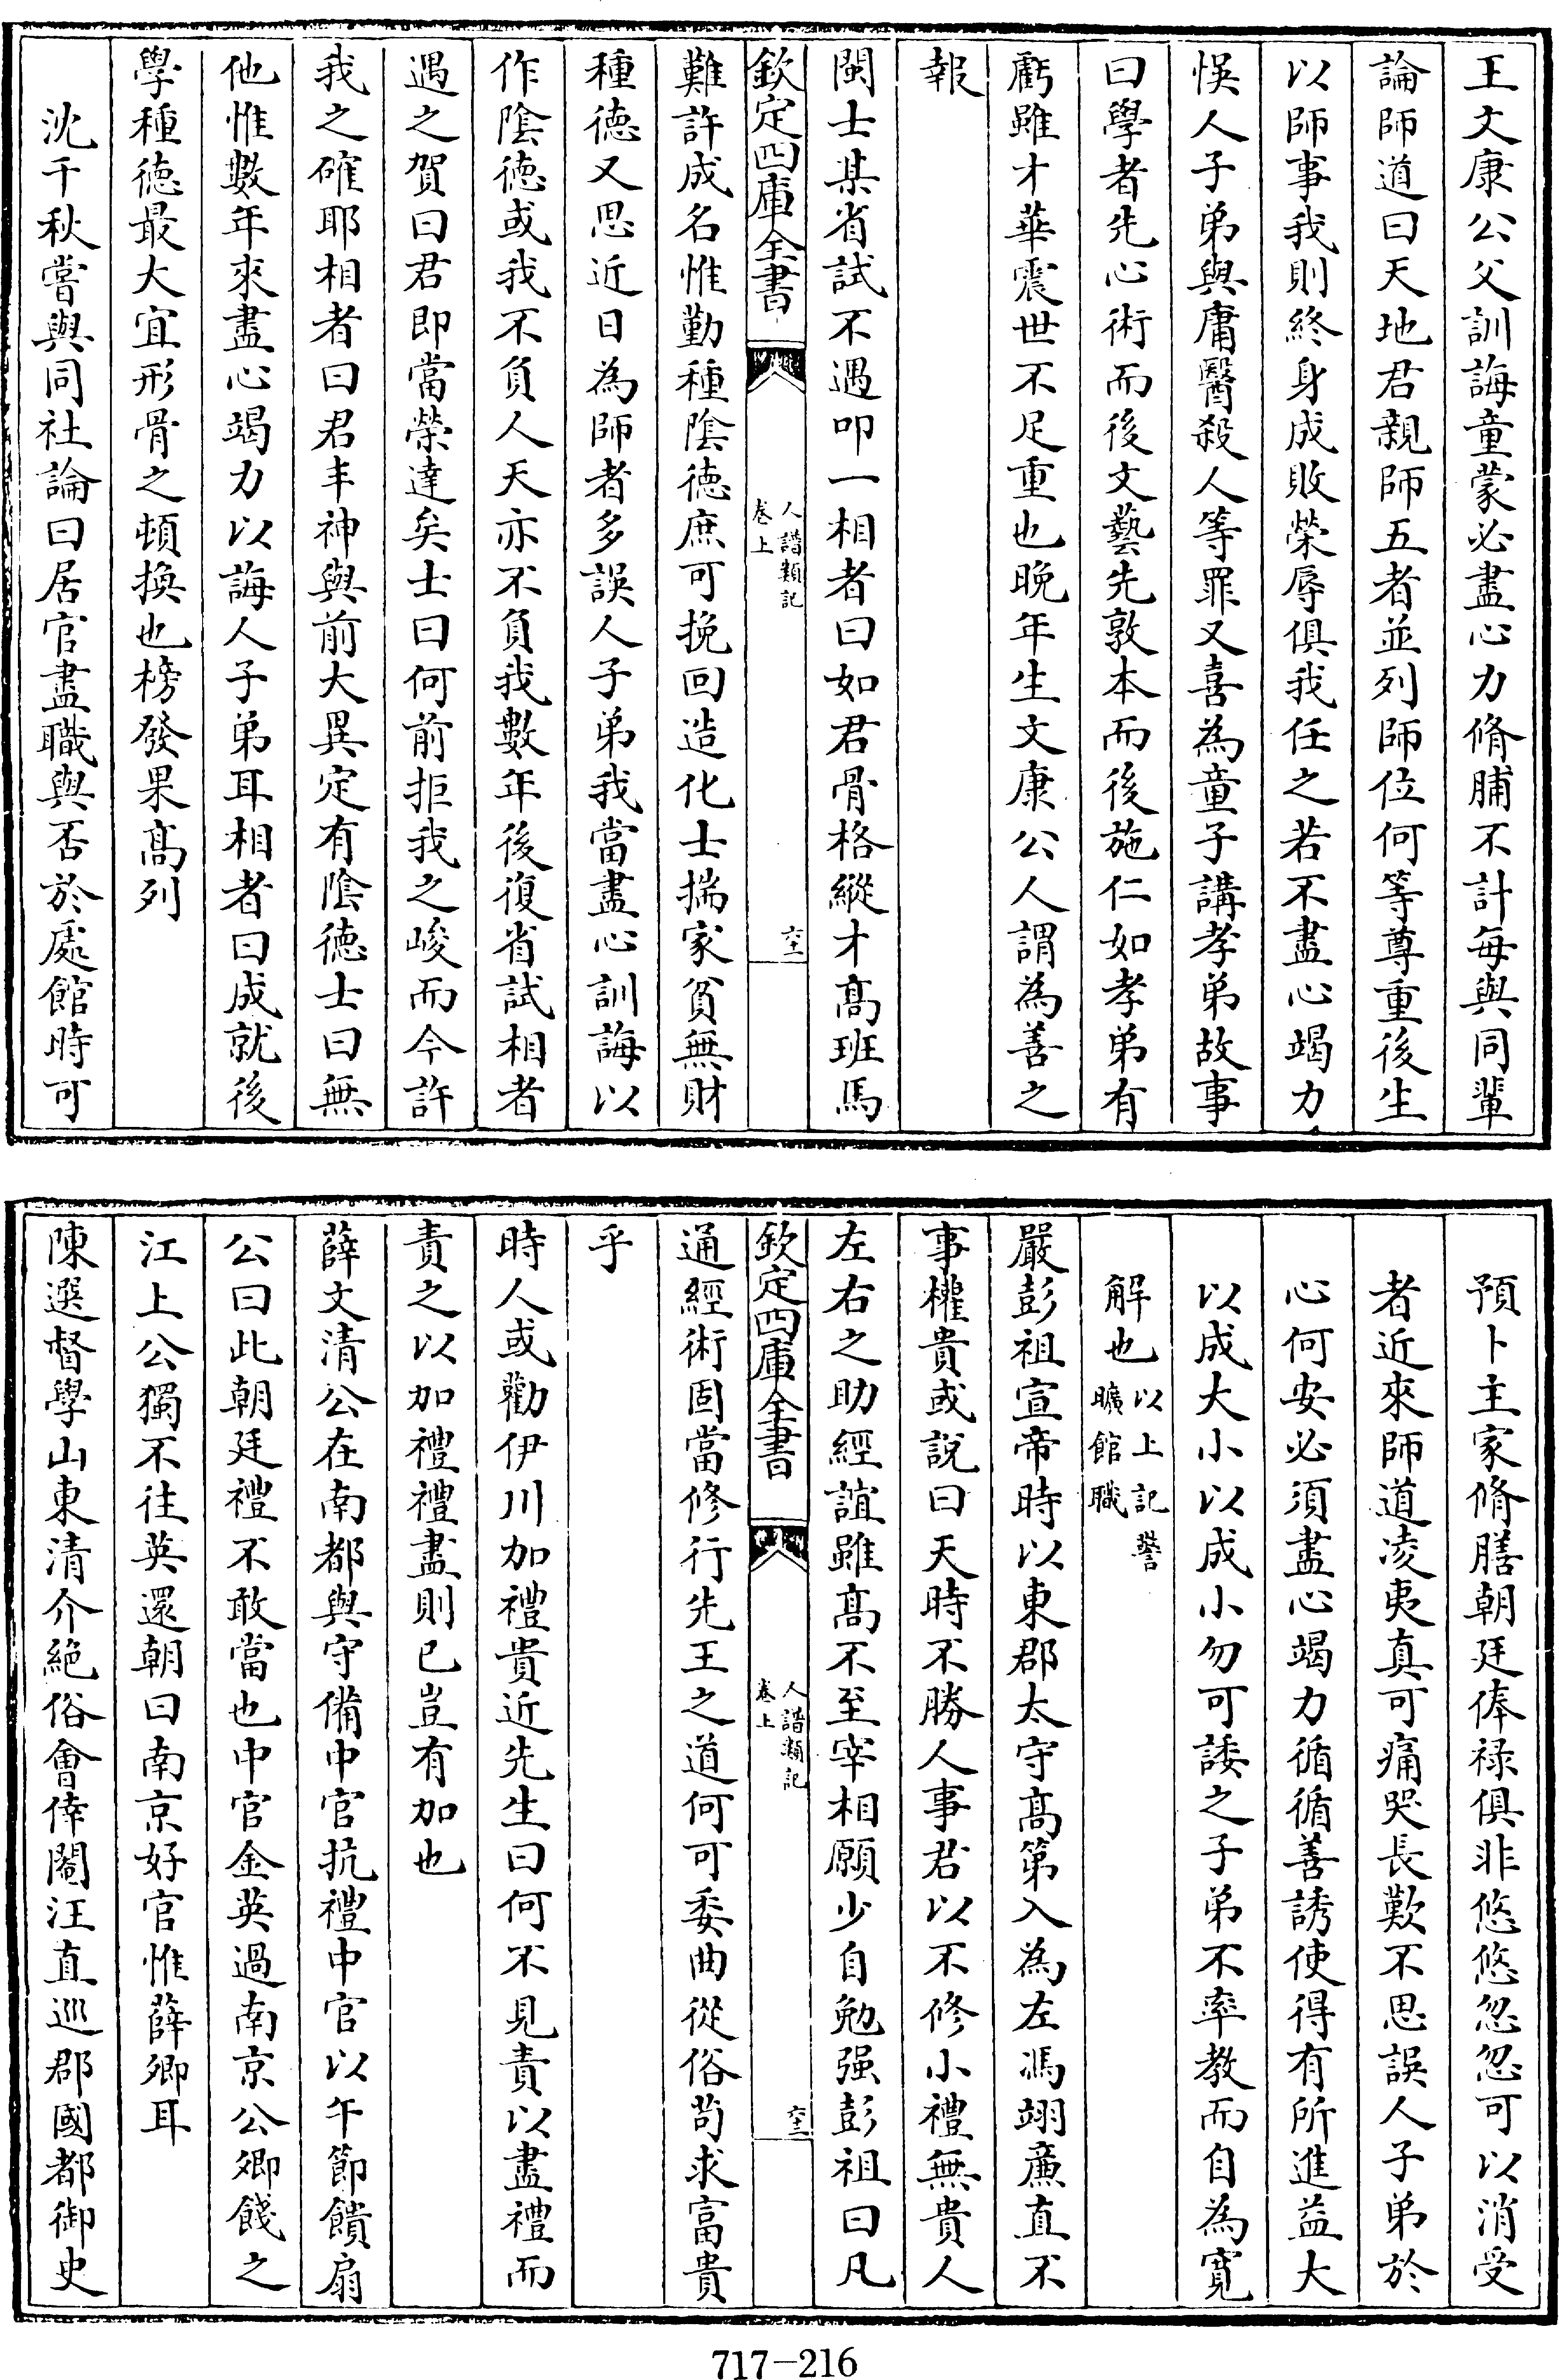 王文康公父訓誨童蒙必盡心力脩脯不計每與同輩
論師道曰天地君親師五者並列師位何等尊重後生
以師事我則終身成敗榮辱俱我任之若不盡心竭力
悞人子弟與庸醫殺人等罪又喜為童子講孝弟故事
曰學者先心術而後文藝先敦本而後施仁如孝弟有
虧雖才華震世不足重也晚年生文康公人謂為善之
報
閩士某省試不遇叩一相者曰如君骨格縱才髙班馬
欽定四庫全書
人譜類記
卷上
六十一
難許成名惟勤種陰徳庶可挽回造化士揣家貧無財
種徳又思近日為師者多誤人子弟我當盡心訓誨以
作陰徳或我不負人天亦不負我數年後復省試相者
遇之賀曰君即當榮達矣士曰何前拒我之峻而今許
我之確耶相者曰君丰神與前大異定有陰徳士曰無
他惟數年來盡心竭力以誨人子弟耳相者曰成就後
學種徳最大宜形骨之頓換也榜發果髙列
沈千秋嘗與同社論曰居官盡職與否於處館時可
預卜主家脩膳朝廷俸禄俱非悠悠忽忽可以消受
者近來師道凌夷真可痛哭長歎不思誤人子弟於
心何安必須盡心竭力循循善誘使得有所進益大
以成大小以成小勿可諉之子弟不率教而自為寛
解也
以上記警
曠館職
嚴彭祖宣帝時以東郡太守髙第入為左馮翊廉直不
事權貴或說曰天時不勝人事君以不修小禮無貴人
左右之助經誼雖髙不至宰相願少自勉强彭祖曰凡
欽定四庫全書
人譜類記
卷上
六十二
通經術固當修行先王之道何可委曲從俗茍求富貴
乎
時人或勸伊川加禮貴近先生曰何不見責以盡禮而
責之以加禮禮盡則已豈有加也
薛文清公在南都與守備中官抗禮中官以午節饋扇
公曰此朝廷禮不敢當也中官金英過南京公卿餞之
江上公獨不往英還朝曰南京好官惟薛卿耳
陳選督學山東清介絶俗會倖閹汪直巡郡國都御史
717-216